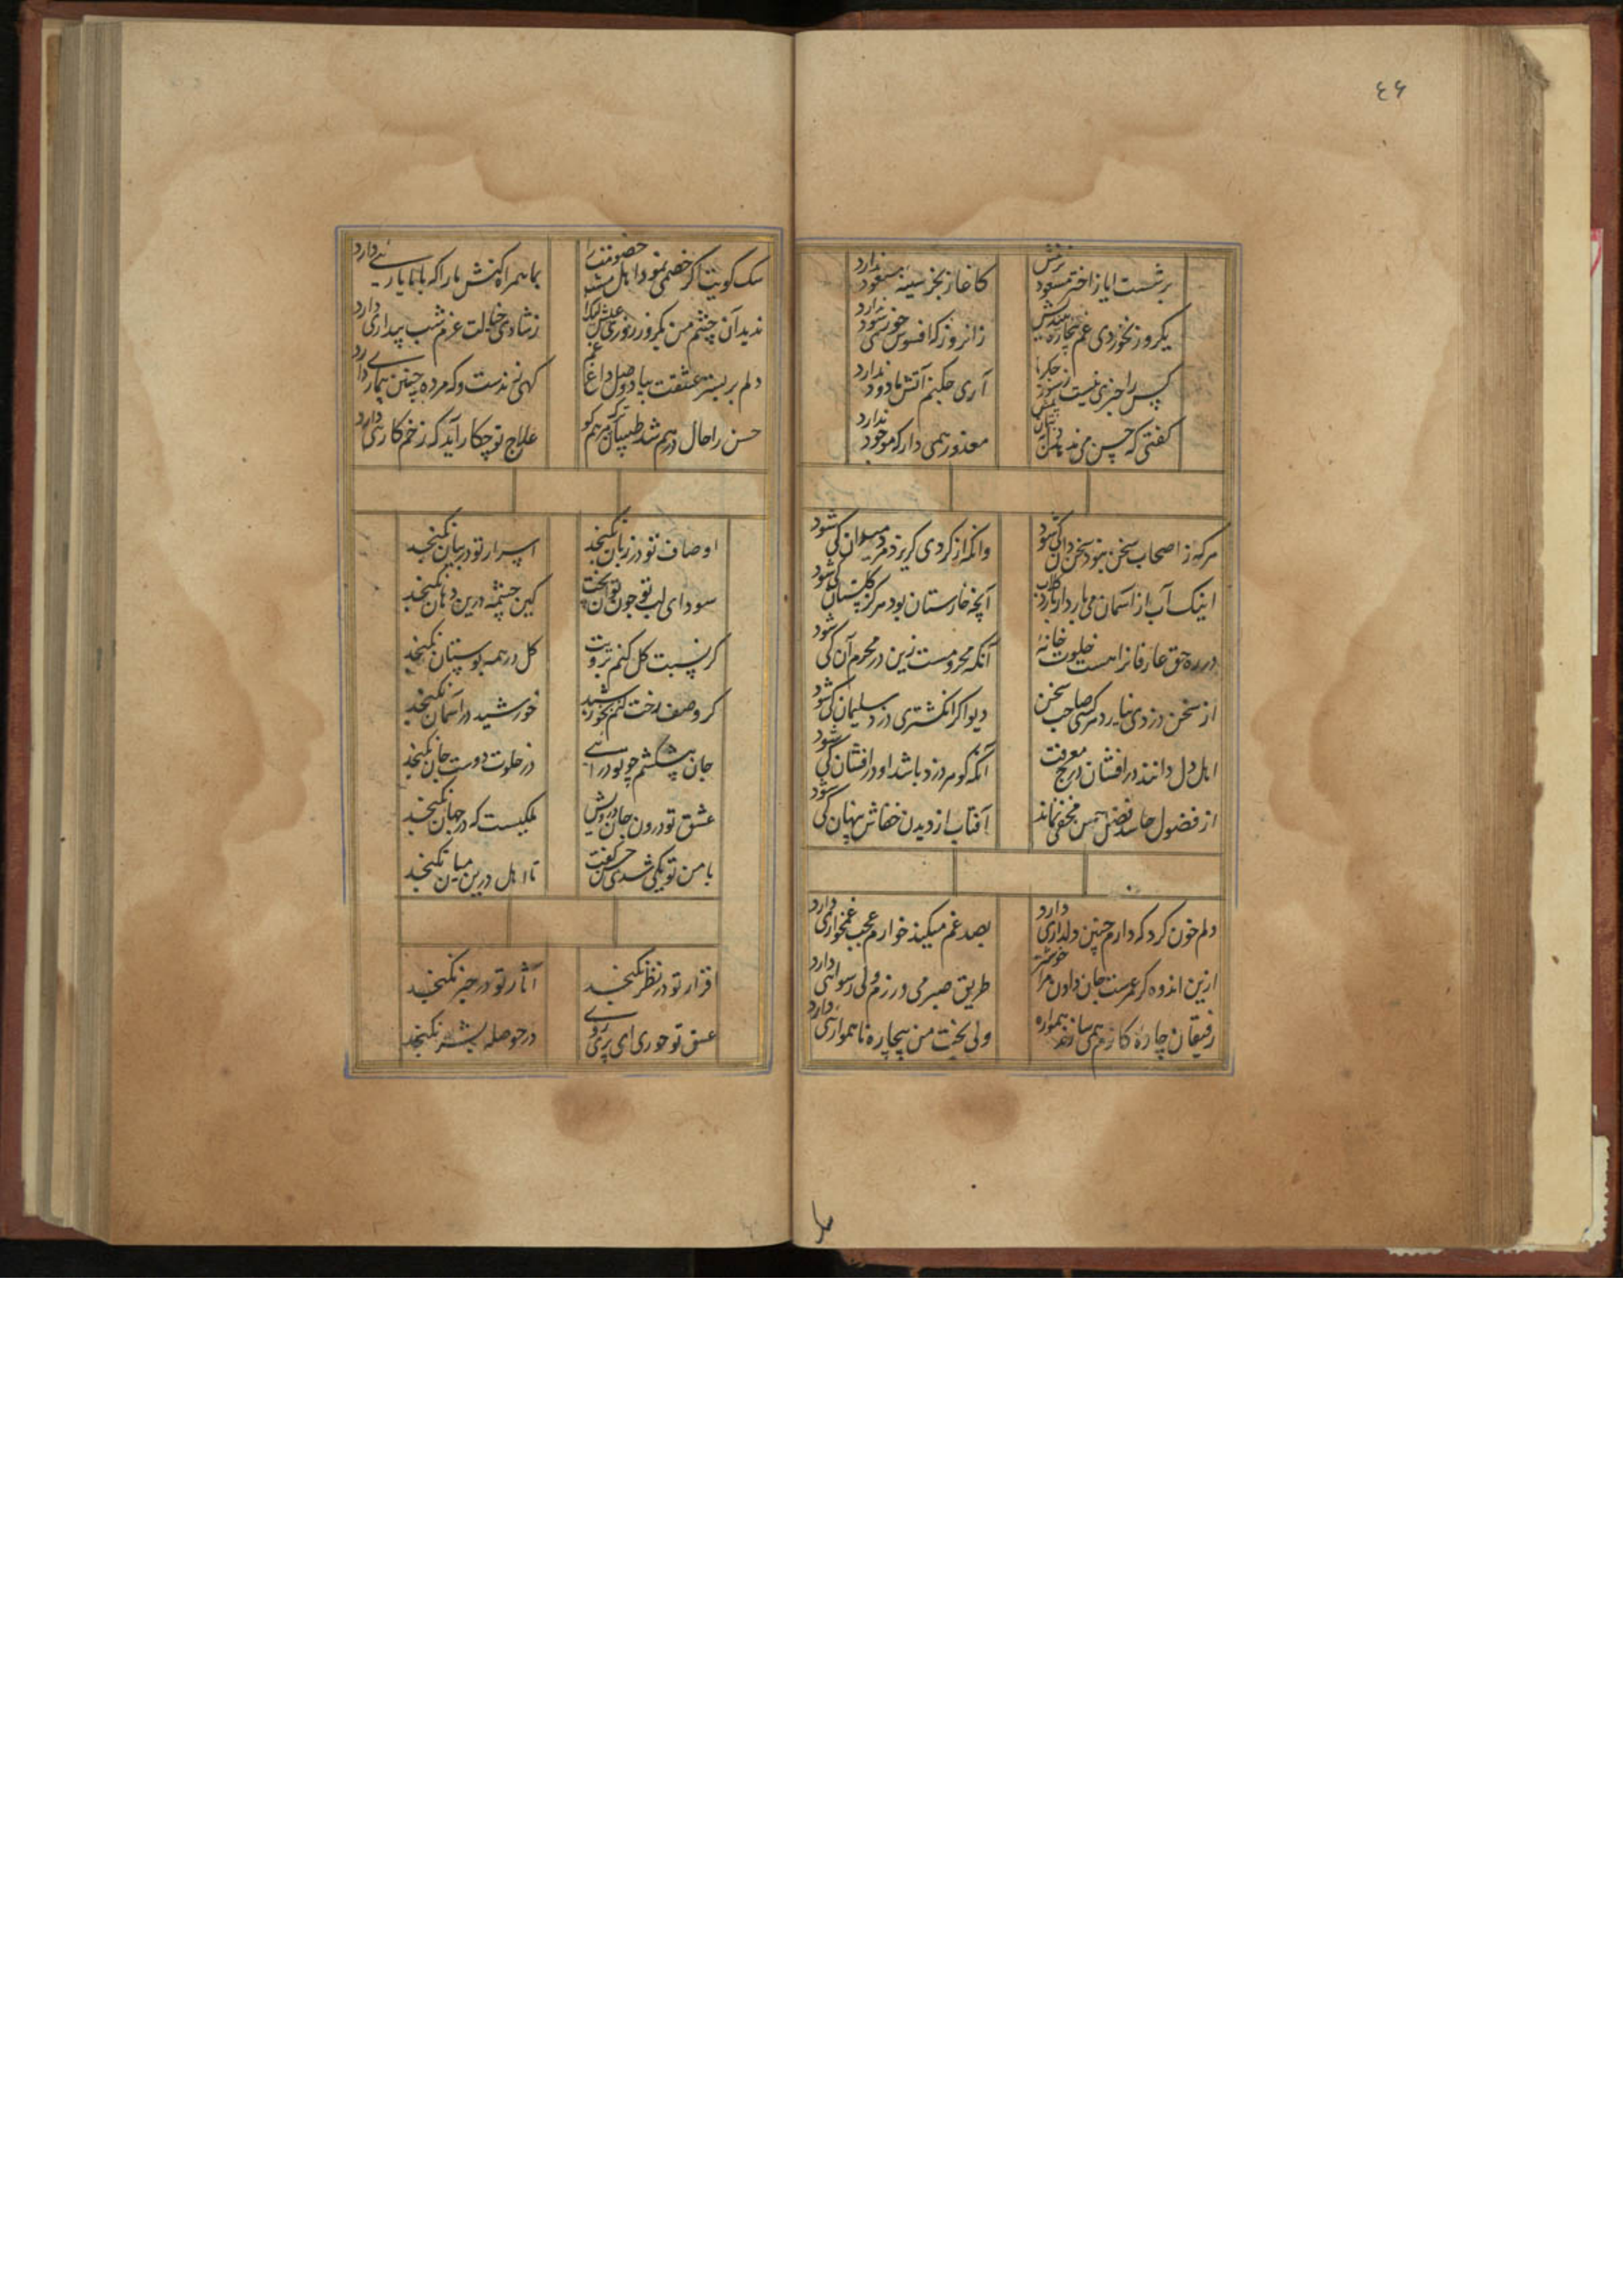 ۴۶
برشست ایاز اختر مسعود
کاغاز بخز سینه ندارد
یکروز نخوردی غم بیچاره
زانروز که افسوس خورد ندارد
کس را خبری نیست ز سوز جگر ما
آری چکنم آتش ما دود ندارد
گفتی که حسن
معذور همی دار که موجود ندارد
هرکه ز اصحاب سخن نبود سخن دان کی شود
وانکه از گردی گریزد مرد میدان کی شود
اینک آب از آسمان می بارد
آنچه خارستان بود هرگز گلستان کی شود
در ره حق عارفانرا هست خلوت خانهٔ
آنکه محرومست زین در محرم آن کی شود
از سخن دزدی نیاید مرد صاحب سخن
دیو اگر انگشتری دزدد سلیمان کی شود
اهل دل دانند در افشان درج معرفت
آنکه گوهر دزد باشد او در افشان کی شود
از فضول حاسد فضل حسن مخفی نماند
آفتاب از دیدن خفاش پنهان کی شود
دلم خون کرد که دارم چنین دلداری دارد
بصد غم میکند خوارم عجب غمخواری دارد
ازین اندوه گر عمرست جان دادن مرا خوشتر
طریق صبر می ورزم ولی رسوائی دارد
رفیقان چارهٔ کارم همی سازند همواره
ولی بخت من بیچاره ناهمواری دارد
سک کویت اگر خصمی نمود اهل خصومت را
بما همراه کنش یارا که با ما یاریی دارد
ندید آن چشم من یکروز روزی عیش لیکن
ز شادی خیالت عزم شب بیداری دارد
دلم بر بستر عشقت بیاد وصل داغ غم
کهی زندست و که مرده چنین بیماری دارد
حسن را حال درهم شد طبیبان ترک مرهم کو
علاج تو چکار آید که زخم کاری دارد
اوصاف تو در زبان نکنجد
اسرار تو در بیان نکنجد
سودای لب تو چون توان پخت
کین چشمه درین دهان نکنجد
گر نسبت گل کنم برویت
گل در همه بوستان نکنجد
گر وصف رخت کنم بخورشید
خورشید در آسمان نکنجد
جان پیش کشم چو تو در آئی
در خلوت دوست جان نکنجد
عشق تو درون جان درویش
ملکیست که در جهان نکنجد
با من تو یکی شدی حسن گفت
تا اهل درین میان نکنجد
اقرار تو در نظر نکنجد
آثار تو در خبر نکنجد
عشق تو حوری ای پری روی
در حوصله بشر نکنجد